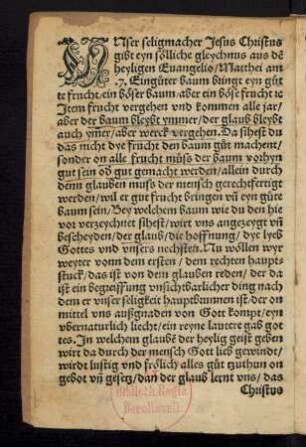 VNser seligmacher Jesus Christus
gibt eyn sölliche gleychnus aus dē
heyligen Euangelio/Matthei am
.7. Ein gůter baum bringt eyn gůt
te frucht/ein böser baum/aber ein böse frucht ꝛc
Item frucht vergehen vnd kommen alle jar/
aber der baum bleybt ymmer/der glaub bleybt
auch ymer/aber werck vergehen. Da sihest du
das nicht dye frucht den baum gůt machent/
sonder on alle frucht můss der baum vorhyn
gut sein od gut gemacht werden/allein durch
denn glauben muss der mensch gerechtfertigt
werden/wil er gut frucht bringen vñ eyn gůte
baum sein/Bey welchem baum wie du den hie
vor verzeychnet sihest/wirt vns angezeygt vñ
bescheyden/der glaub/die hoffnung/dye lyeb
Gottes vnd vnsers nechsten. Nu wöllen wyr
weyter vonn dem ersten/dem rechten haupt-
stuck/das ist von dem glauben reden/der da
ist ein begreiffung vnsichtbarlicher ding nach
dem er vnser seligkeit hauptbrunnen ist/der on
mittel vns außgnaden von Gott kompt/eyn
vbernaturlich liecht/ein reyne lautere gab got
tes. In welchem glaubē der heylig geist geben
wirt da durch der mensch Gott lieb gewindt/
wirdt lustig vnd frölich alles gůt zuthun on
gebot vñ gesetz/dan der glaub lernt vns/das
Christus
Biblioth. Regia
Berolinensi